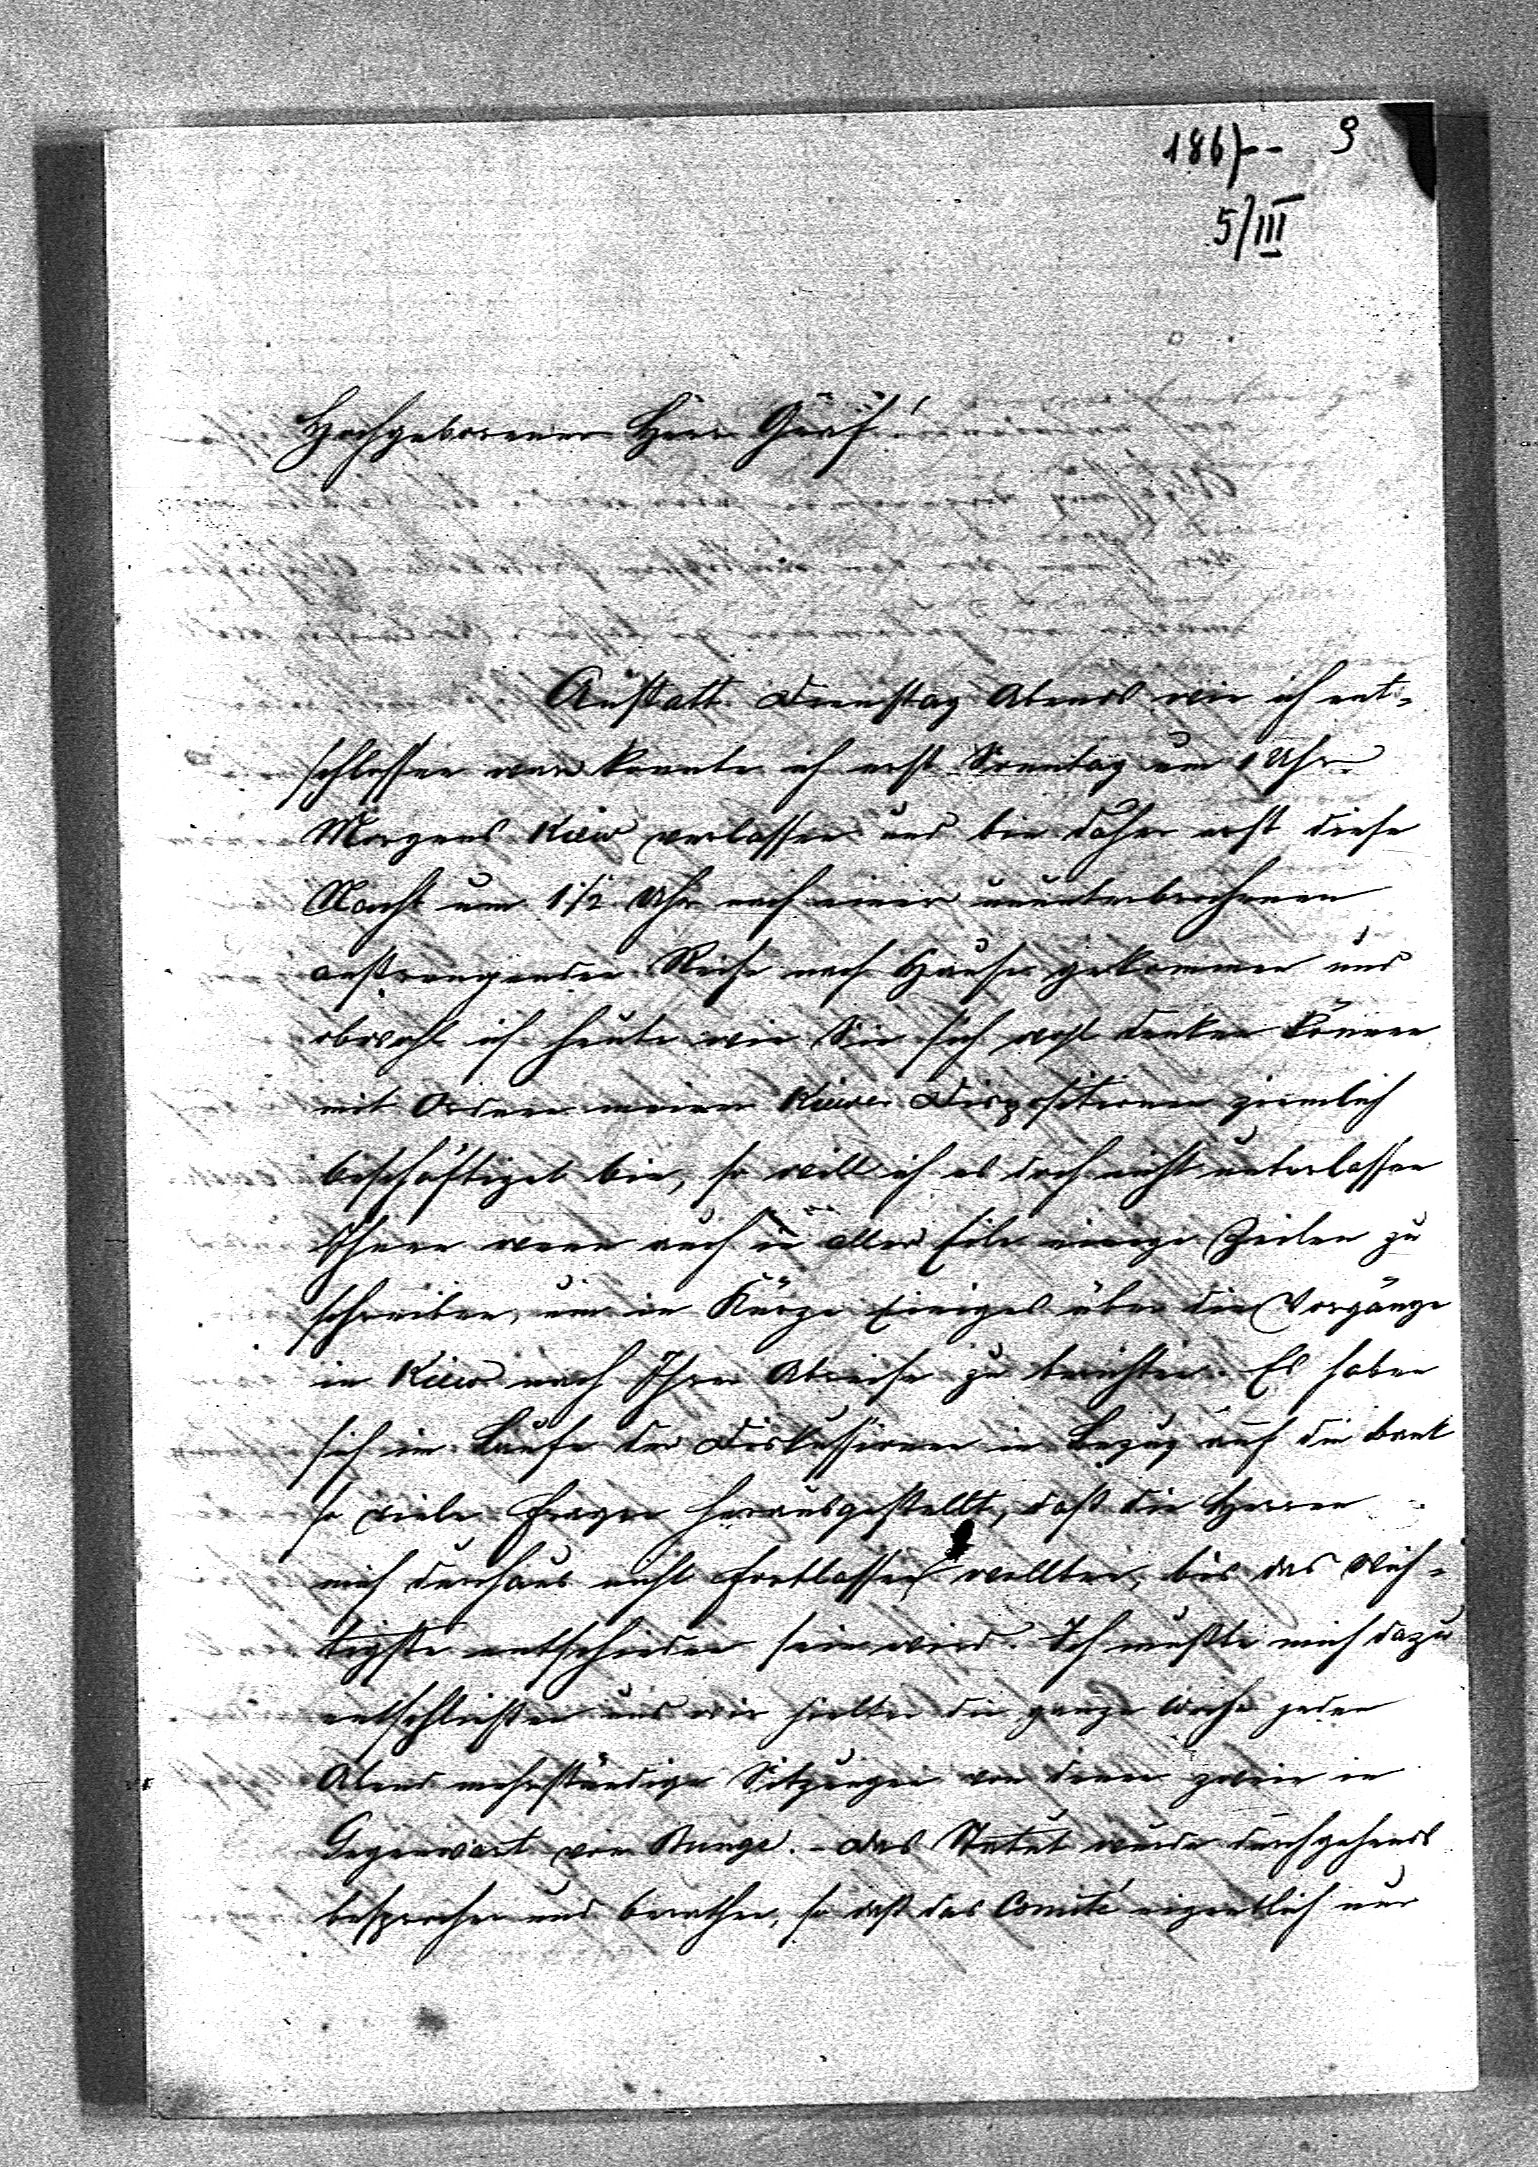 1867-- 9
5/III
Hochgeborener Herr Graf!
Anstatt Dienstag Abends wie ich ent-
schlossen war konnte ich erst Sonntag um 1 Uhr
Morgens Kiew verlassen und bin daher erst diese
Nacht um 1 1/2 Uhr nach einer ununterbrochenen
anstrengenden Reise nach Hause gekommen und
obwohl ich heute wie Sie sich wohl denken können
mit Ordnen meiner Kiewer Dispositionen ziemlich
beschäftiget bin, so will ich es doch nicht unterlassen
Ihnen wenn auch in aller Eile einige Zeilen zu
schreiben, um in Kürze Einiges über die Vorgänge
in Kiew nach Ihrer Abreise zu berichten. Es haben
sich im Laufe der Diskussionen in Bezug auf die Bank
so viele Fragen herausgestellt, daß die Herren
mich durchaus nicht fortlassen wollten, bis das Wich-
tigste entschieden sein wird. Ich mußte mich dazu
entschließen und wir hielten die ganze Woche jeden
Abend mehrstündige Sitzungen von denen zwei in
Gegenwart von Bunge. - Das Statut wurde durchgehends
besprochen und berathen, so daß das Comité eigentlich nur